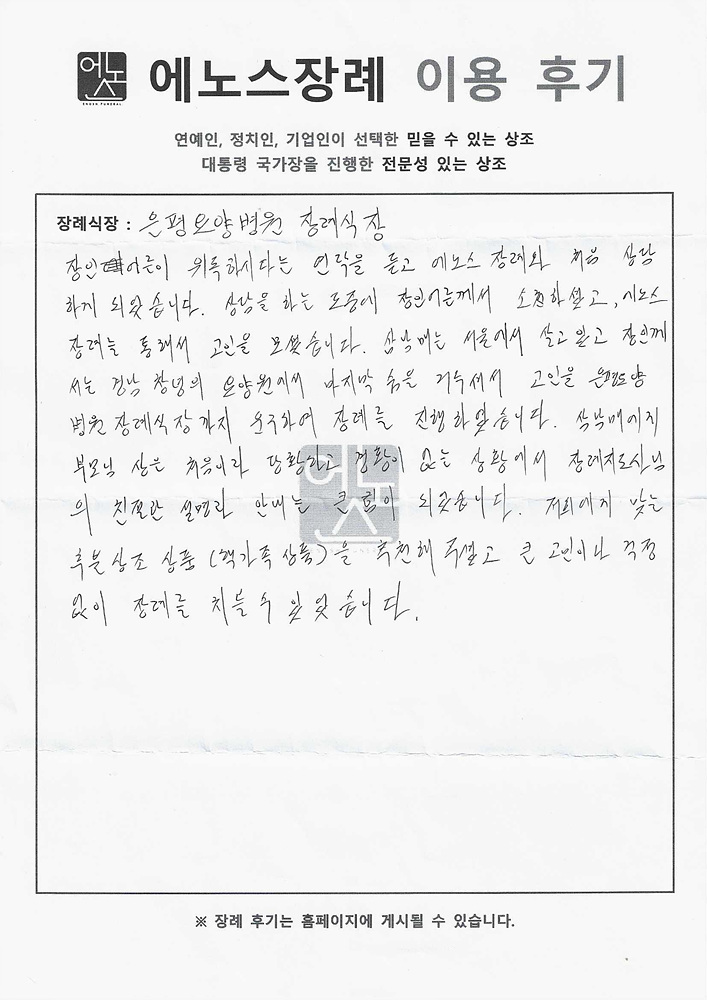 에노스
ENOSE FUNERAL
에노스장례 이용 후기
연예인, 정치인, 기업인이 선택한 믿을 수 있는 상조
대통령 국가장을 진행한 전문성 있는 상조
장례식장 : 은평요양병원 장례식장
장인어른이 위독하시다는 연락을 듣고 에노스 장례와 처음 상담
하게 되었습니다. 상담을 하는 도중에 장인어른께서 소천하셨고, 에노스
장례를 통해서 고인을 모셨습니다. 삼남매는 서울에서 살고 있고 장인께
서는 경남 창녕의 요양원에서 마지막 숨을 거두셔서 고인을 은평요양
병원 장례식장까지 운구하여 장례를 진행하였습니다. 삼남매에게
부모님 상은 처음이라 당황하고 경황이 없는 상황에서 장례지도사님
의 친절한 설명과 안내는 큰 힘이 되었습니다. 저희에게 맞는
후불상조 상품 (핵가족 상품)을 추천해 주셨고 큰 고민이나 걱정
없이 장례를 치를 수 있었습니다.
※ 장례 후기는 홈페이지에 게시될 수 있습니다.